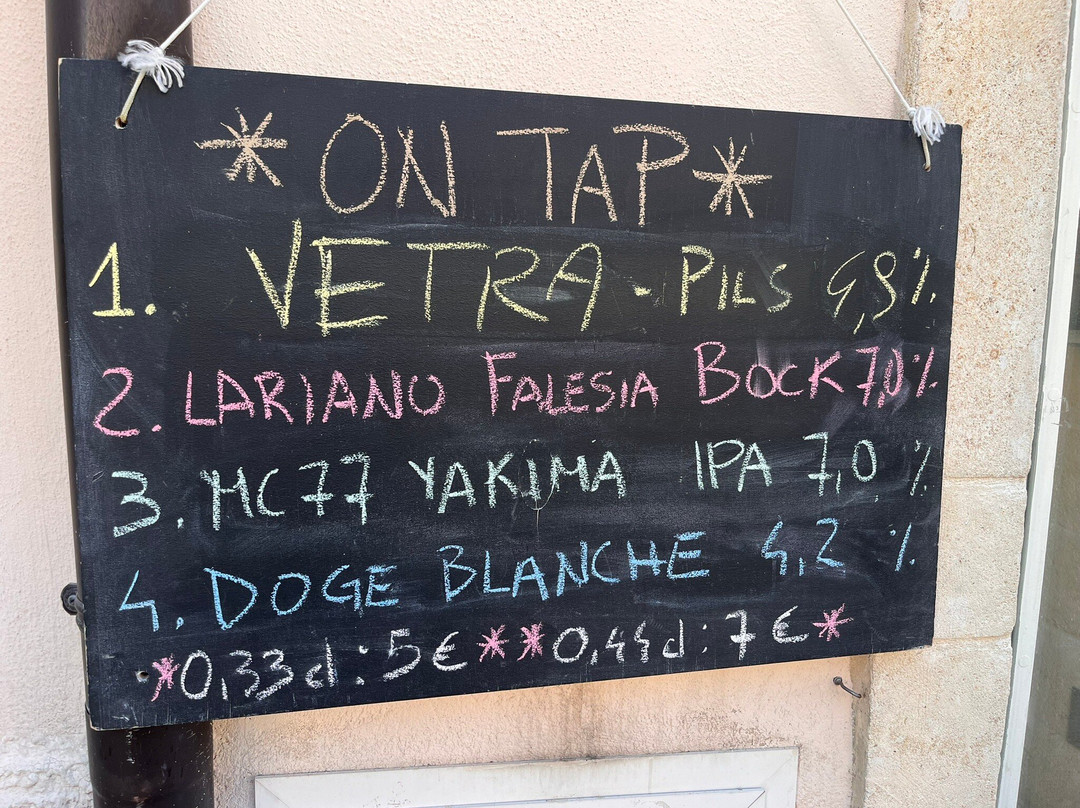 * ON TAP *
1. VETRA - PILS 4,9%
2. LARIANO FALESIA BOCK 7,0%
3. MC77 YAKIMA IPA 7,0 %
4. DOGE BLANCHE 4,2 %
*0,33cl: 5€ **0,44cl: 7€*